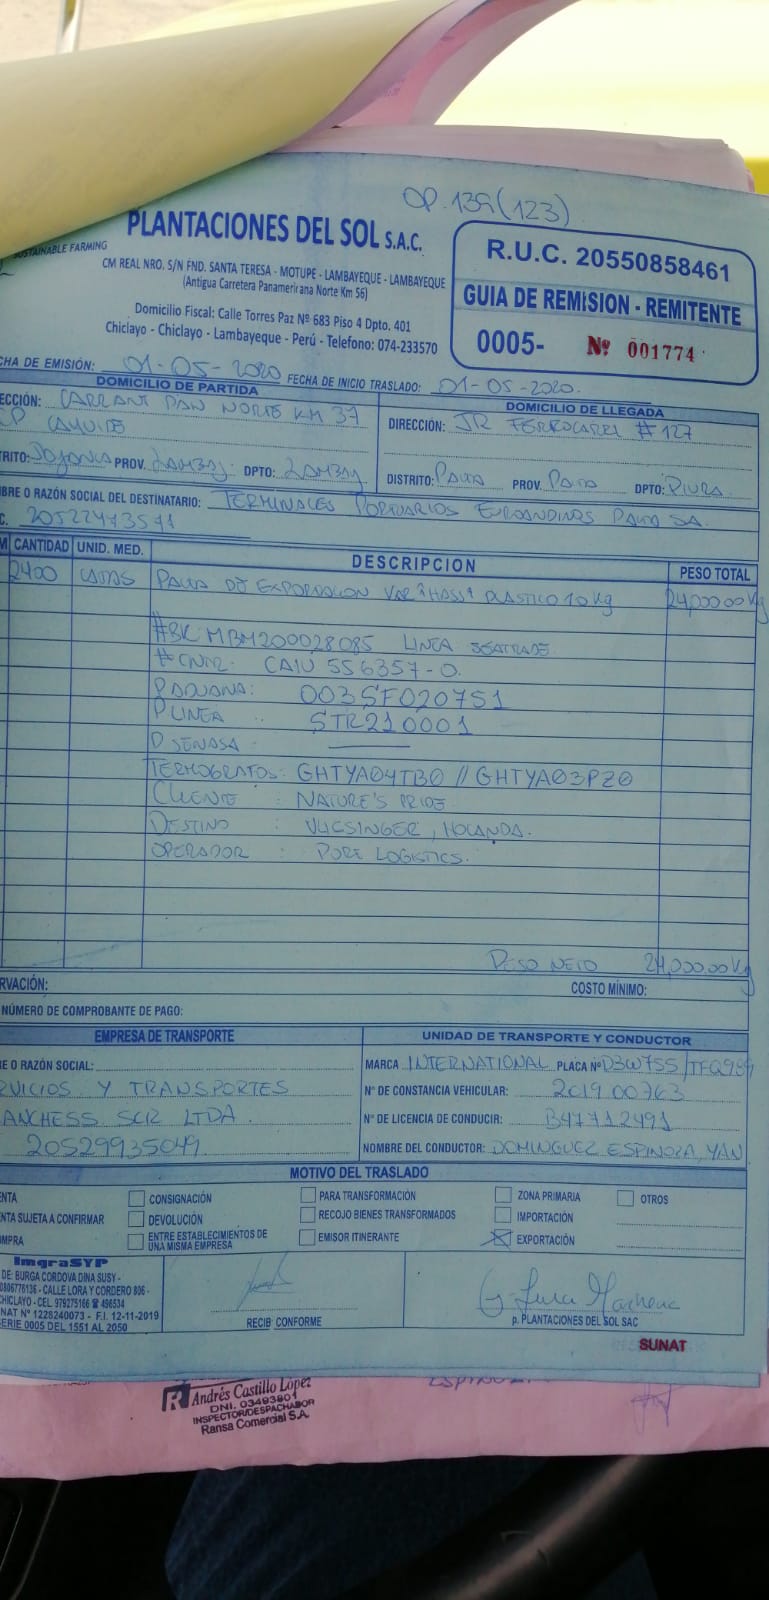 OP. 139(123)
SUSTAINABLE FARMING
PLANTACIONES DEL SOL S.A.C.
CM REAL NRO. S/N FND. SANTA TERESA - MOTUPE - LAMBAYEQUE - LAMBAYEQUE
(Antigua Carretera Panamerirana Norte Km 56)
Domicilio Fiscal: Calle Torres Paz Nº 683 Piso 4 Dpto. 401
Chiclayo - Chiclayo - Lambayeque - Perú - Telefono: 074-233570
R.U.C. 20550858461
GUIA DE REMISION - REMITENTE
0005- Nº 001774
CHA DE EMISIÓN: 01-05-2020 FECHA DE INICIO TRASLADO: 01-05-2020.
DOMICILIO DE PARTIDA
ECCIÓN: CARRANT PAN NORTE KM 37
CP CAYUIDE
TRITO: PROV. LAMBAY. DPTO: LAMBAY
DOMICILIO DE LLEGADA
DIRECCIÓN: JR FERROCARRIL # 127
DISTRITO: PAITA PROV. PAITA DPTO: PIURA.
BRE O RAZÓN SOCIAL DEL DESTINATARIO: TERMINALES PORTUARIOS EUROANDINOS PAITA SA.
C. 20522473571
M CANTIDAD UNID. MED. DESCRIPCION PESO TOTAL
2400 CAJAS PALTA DE EXPORTACION VAR "HASS" PLASTICO 10 Kg 24,000.00 Kg
#BK MBM200028085 LINEA SEATRADE
#CNTR: CAIU 556357-0.
P ADUANA: 003SF020751
P LINEA : STR210001
P SENASA :
TERMOGRAFOS: GHTYA04TB0 // GHTYA03PZ0
CLIENTE : NATURE'S PRIDE
DESTINO : VLICSINGER, HOLANDA.
OPERADOR : PURE LOGISTICS.
PESO NETO 24,000.00 Kg
RVACIÓN: COSTO MÍNIMO:
NÚMERO DE COMPROBANTE DE PAGO:
EMPRESA DE TRANSPORTE
E O RAZÓN SOCIAL:
RVICIOS Y TRANSPORTES
ANCHESS SCR LTDA.
20529935049
UNIDAD DE TRANSPORTE Y CONDUCTOR
MARCA INTERNATIONAL PLACA Nº D3W755/TFQ989
Nº DE CONSTANCIA VEHICULAR: 201900763
Nº DE LICENCIA DE CONDUCIR: B47712491
NOMBRE DEL CONDUCTOR: DOMINGUEZ ESPINOZA, YAN
MOTIVO DEL TRASLADO
ENTA CONSIGNACIÓN PARA TRANSFORMACIÓN ZONA PRIMARIA OTROS
NTA SUJETA A CONFIRMAR DEVOLUCIÓN RECOJO BIENES TRANSFORMADOS IMPORTACIÓN
OMPRA ENTRE ESTABLECIMIENTOS DE UNA MISMA EMPRESA EMISOR ITINERANTE EXPORTACIÓN
ImgraSYP
DE: BURGA CORDOVA DINA SUSY -
0806776136 - CALLE LORA Y CORDERO 806 -
CHICLAYO - CEL. 979275166 ☎ 496534
NAT Nº 1228240073 - F.I. 12-11-2019
SERIE 0005 DEL 1551 AL 2050
RECIBI CONFORME
p. PLANTACIONES DEL SOL SAC
SUNAT
R Andrés Castillo López
DNI. 03493801
INSPECTOR/DESPACHADOR
Ransa Comercial S.A.